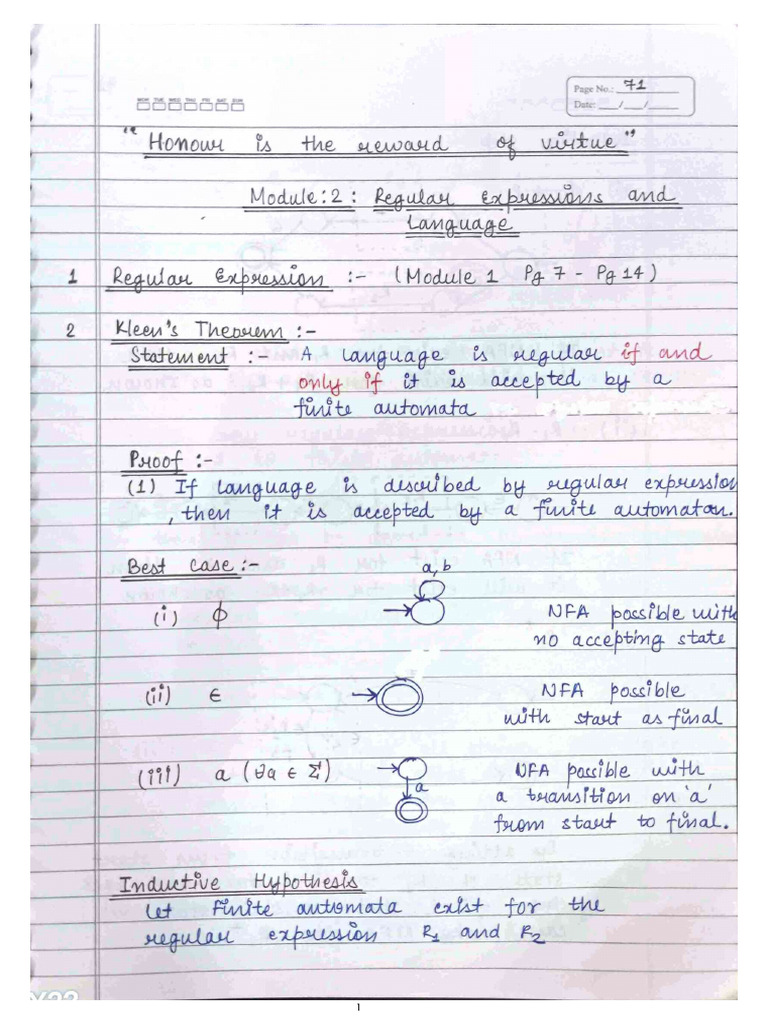 MON TUE WED THU FRI SAT SUN
Page No.: 71
Date: / /
"Honour is the reward of virtue"
Module:2: Regular Expressions and
Language
1 Regular Expression :- (Module 1 Pg 7 - Pg 14)
2 Kleen's Theorem :-
Statement :- A language is regular if and
only if it is accepted by a
finite automata
Proof :-
(1) If language is described by regular expression
, then it is accepted by a finite automaton.
Best Case :-
a, b
(i) ϕ NFA possible with
no accepting state
(ii) ϵ NFA possible
with start as final
(iii) a (∀a ∈ Σ) NFA possible with
a
a transition on 'a'
from start to final.
Inductive Hypothesis
Let Finite automata exist for the
regular expression R₁ and R₂
1